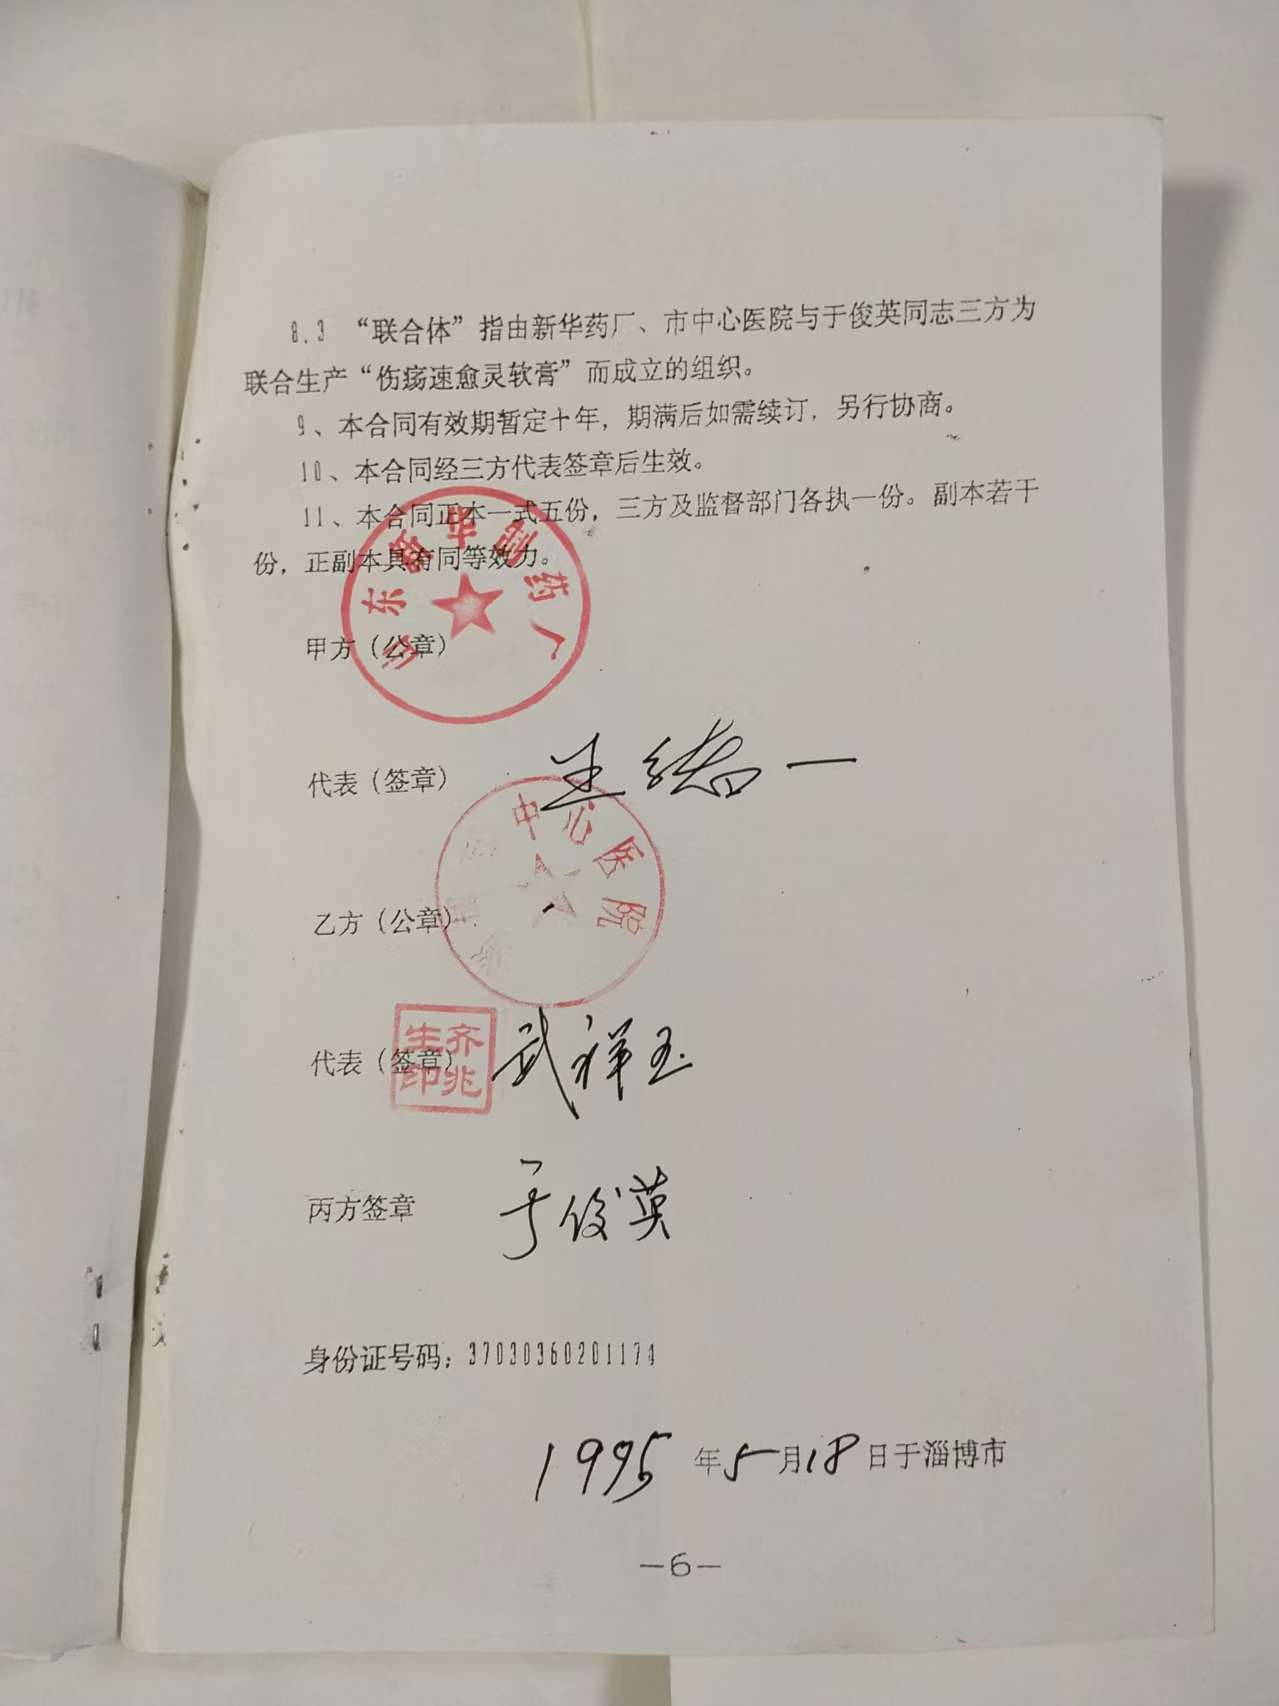 8.3 “联合体”指由新华药厂、市中心医院与于俊英同志三方为
联合生产“伤疡速愈灵软膏”而成立的组织。
9、本合同有效期暂定十年，期满后如需续订，另行协商。
10、本合同经三方代表签章后生效。
11、本合同正本一式五份，三方及监督部门各执一份。副本若干
份，正副本具有同等效力。
山东新华制药厂
甲方（公章）
代表（签章）
中心医院
乙方（公章）
代表（签章） 武祥玉
齐兆生印
丙方签章 于俊英
身份证号码：37030360201174
1995年5月18日于淄博市
—6—